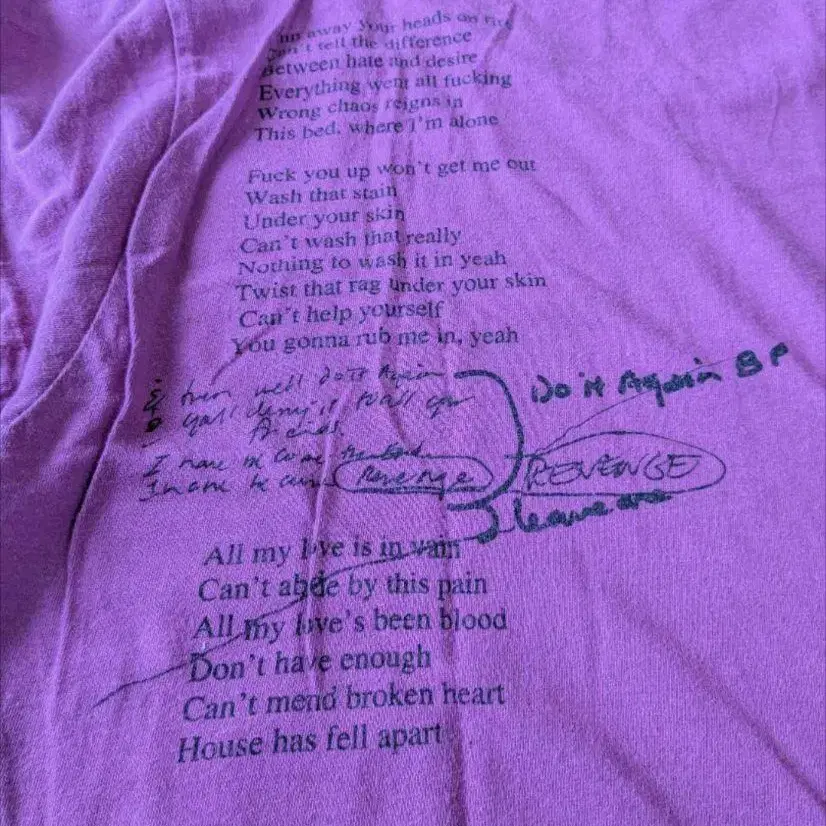 away your heads on fire
Can't tell the difference
Between hate and desire
Everything went all fucking
Wrong chaos reigns in
This bed, where I'm alone
Fuck you up won't get me out
Wash that stain
Under your skin
Can't wash that really
Nothing to wash it in yeah
Twist that rag under your skin
Can't help yourself
You gonna rub me in, yeah
well do it Again
Do it Again BP
deny it to all your
friends
I have become
Revenge
REVENGE
leave one
All my love is in vain
Can't abide by this pain
All my love's been blood
Don't have enough
Can't mend broken heart
House has fell apart